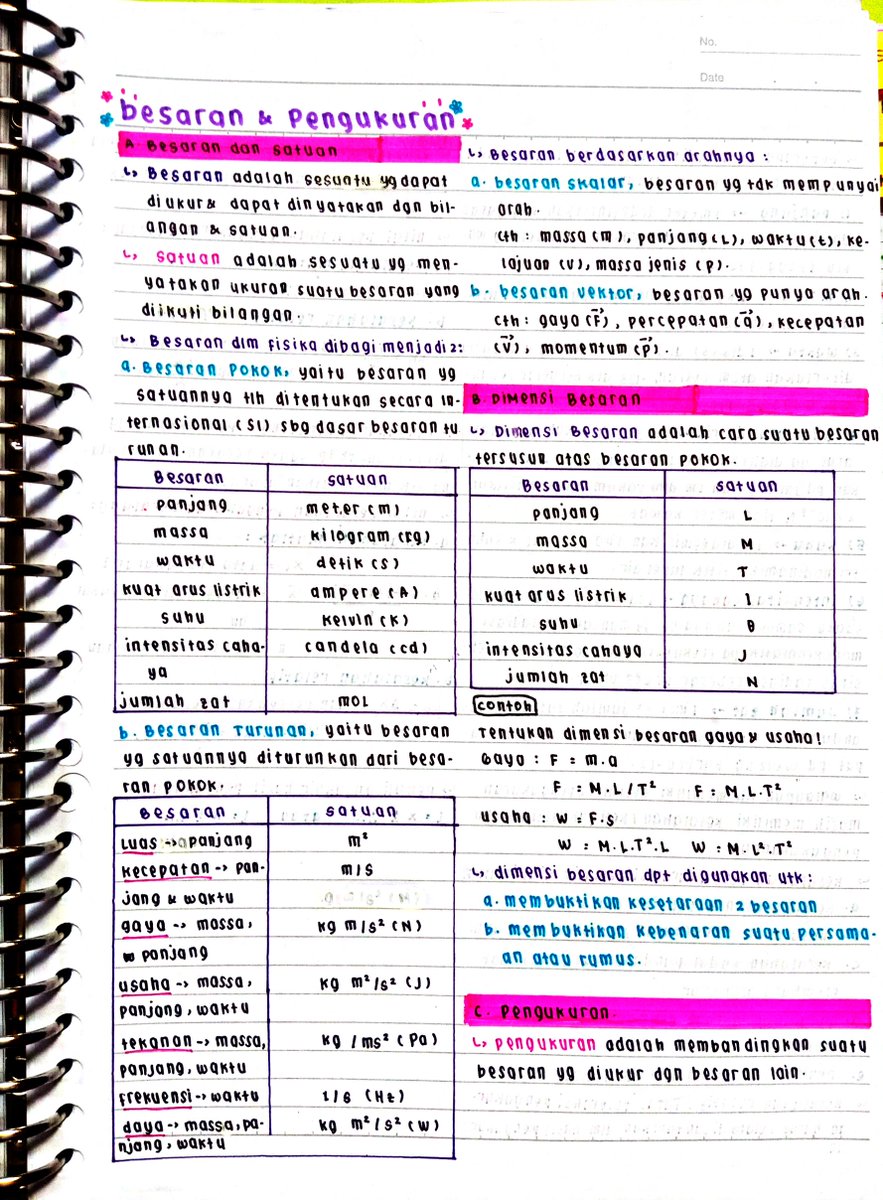 No.
Date
Besaran & Pengukuran
A. Besaran dan Satuan
↳ Besaran adalah sesuatu yg dapat
diukur & dapat dinyatakan dgn bil-
angan & satuan.
↳ Satuan adalah sesuatu yg men-
yatakan ukuran suatu besaran yang
diikuti bilangan.
↳ Besaran dlm fisika dibagi menjadi 2:
a. Besaran Pokok, yaitu besaran yg
satuannya tlh ditentukan secara in-
ternasional (SI) sbg dasar besaran tu
runan.
Besaran satuan
panjang meter (m)
massa kilogram (kg)
waktu detik (s)
kuat arus listrik ampere (A)
suhu kelvin (K)
intensitas caha- candela (cd)
ya
jumlah zat mol
b. Besaran Turunan, yaitu besaran
yg satuannya diturunkan dari besa-
ran pokok.
Besaran satuan
Luas -> panjang m²
kecepatan -> pan- m/s
jang & waktu
gaya -> massa, kg m/s² (N)
panjang
usaha -> massa, kg m²/s² (J)
panjang, waktu
tekanan -> massa, kg /ms² (Pa)
panjang, waktu
frekuensi -> waktu 1/s (Hz)
daya -> massa, pa- kg m²/s² (W)
njang, waktu
↳ Besaran berdasarkan arahnya :
a. besaran skalar, besaran yg tdk mempunyai
arah.
cth : massa (m), panjang (L), waktu (t), ke-
lajuan (v), massa jenis (p).
b. besaran vektor, besaran yg punya arah.
cth : gaya (F⃗), percepatan (a⃗), kecepatan
(V⃗), momentum (p⃗).
B. Dimensi Besaran
↳ Dimensi Besaran adalah cara suatu besaran
tersusun atas besaran pokok.
Besaran satuan
panjang L
massa M
waktu T
kuat arus listrik I
suhu θ
intensitas cahaya J
jumlah zat N
contoh
Tentukan dimensi besaran gaya & usaha!
Gaya : F = m.a
F = M.L/T² F = M.L.T²
usaha : W = F.s
W = M.L.T².L W = M.L².T²
↳ dimensi besaran dpt digunakan utk :
a. membuktikan kesetaraan 2 besaran
b. membuktikan kebenaran suatu persama-
an atau rumus.
C. Pengukuran
↳ pengukuran adalah membandingkan suatu
besaran yg diukur dgn besaran lain.